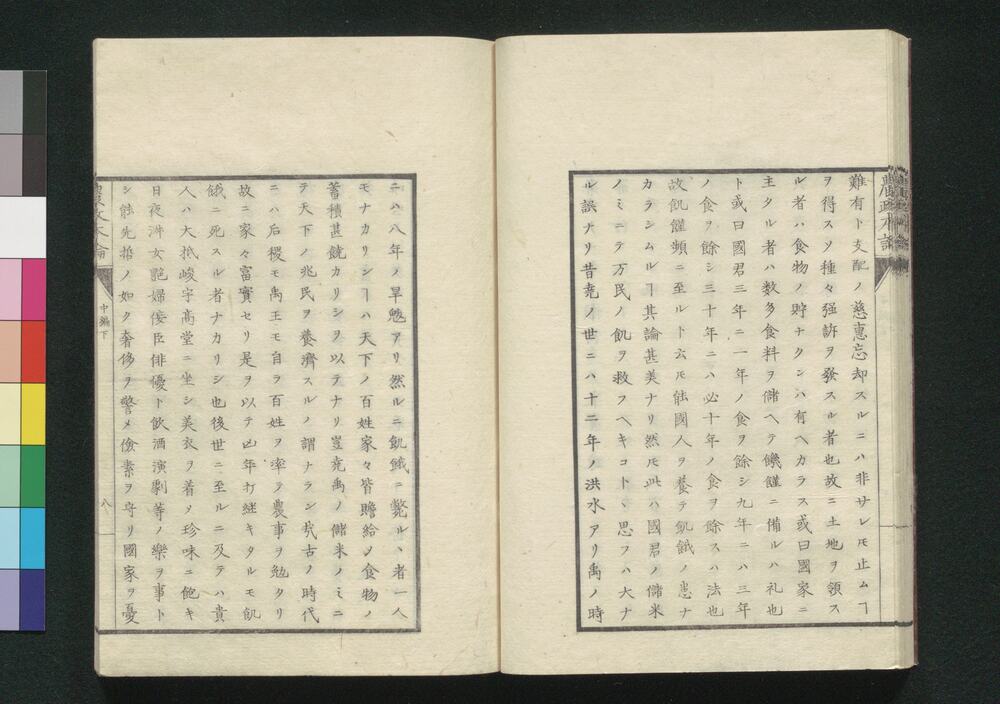 難有ト支配ノ慈惠忘却スルニハ非サレモ止ムヿ
ヲ得スソ種々强訴ヲ發スル者也故ニ土地ヲ領ス
ル者ハ食物ノ貯ナクンハ有ヘカラス或曰國家ニ
主タル者ハ数多食料ヲ儲ヘテ饑饉ニ備ルハ礼也
ト或曰國君三年ニ一年ノ食ヲ餘シ九年ニハ三年
ノ食ヲ餘シ三十年ニハ必十年ノ食ヲ餘スハ法也
故飢饉頻ニ至ルト六モ能國人ヲ養テ飢餓ノ患ナ
カラシムルヿ其論甚美ナリ然モ此ハ國君ノ儲米
ノミニテ万民ノ飢ヲ救フヘキコトヽ思フハ大ナ
ル誤ナリ昔堯ノ世ニハ十二年ノ洪水アリ禹ノ時
ニハ八年ノ旱魃アリ然ルニ飢餓ニ斃ルヽ者一人
モナカリシヿハ天下ノ百姓家々皆贍給ノ食物ノ
蓄積甚饒カリシヲ以テナリ豈堯禹ノ儲米ノミニ
テ天下ノ兆民ヲ養濟スルノ謂ナラン哉古ノ時代
ニハ后稷モ禹王モ自ラ百姓ヲ率テ農事ヲ勉タリ
故ニ家々富實セリ是ヲ以テ凶年打継キタルモ飢
餓ニ死スル者ナカリシ也後世ニ至ルニ及テハ貴
人ハ大抵峻宇高堂ニ坐シ美衣ヲ着メ珍味ニ飽キ
日夜游女艶婦佞臣俳優ト飲酒演劇等ノ樂ヲ事ト
シ能先哲ノ如ク奢侈ヲ警メ儉素ヲ守リ國家ヲ憂
農政本論
中編下
八